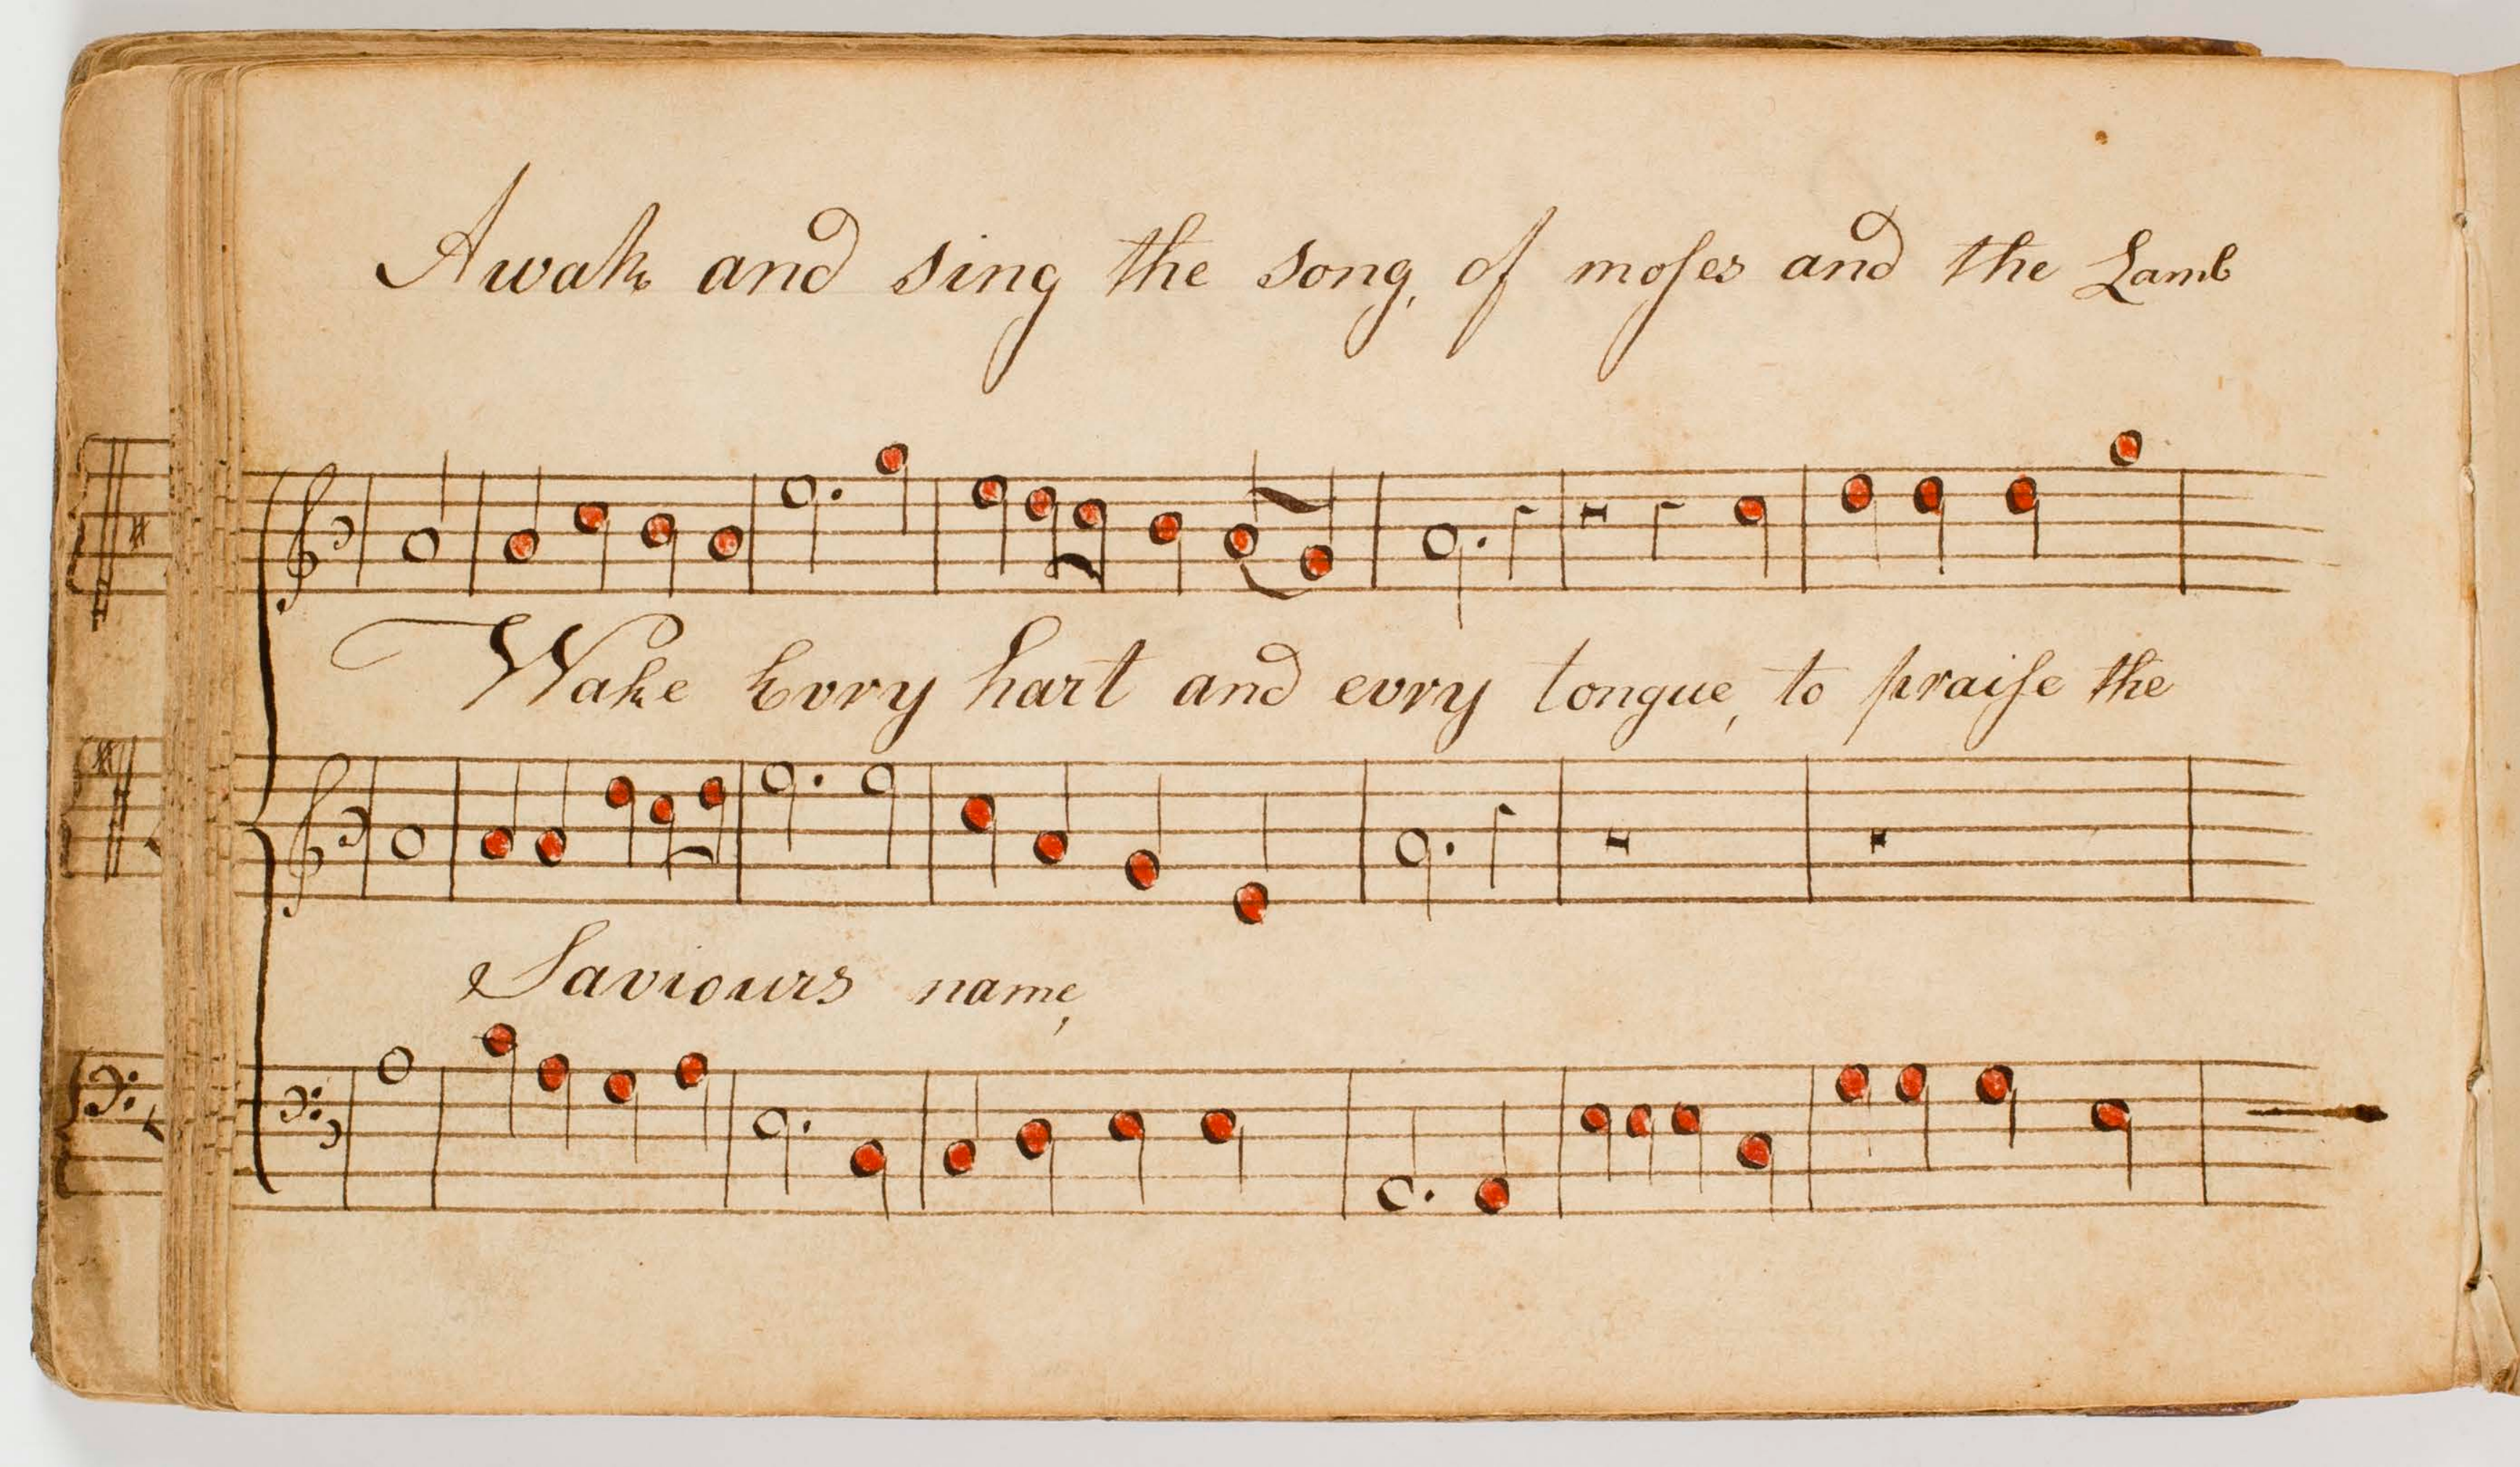 Awake and sing the song, of moſes and the Lamb
Wake Evry hart and evry tongue, to praiſe the
Saviours name,